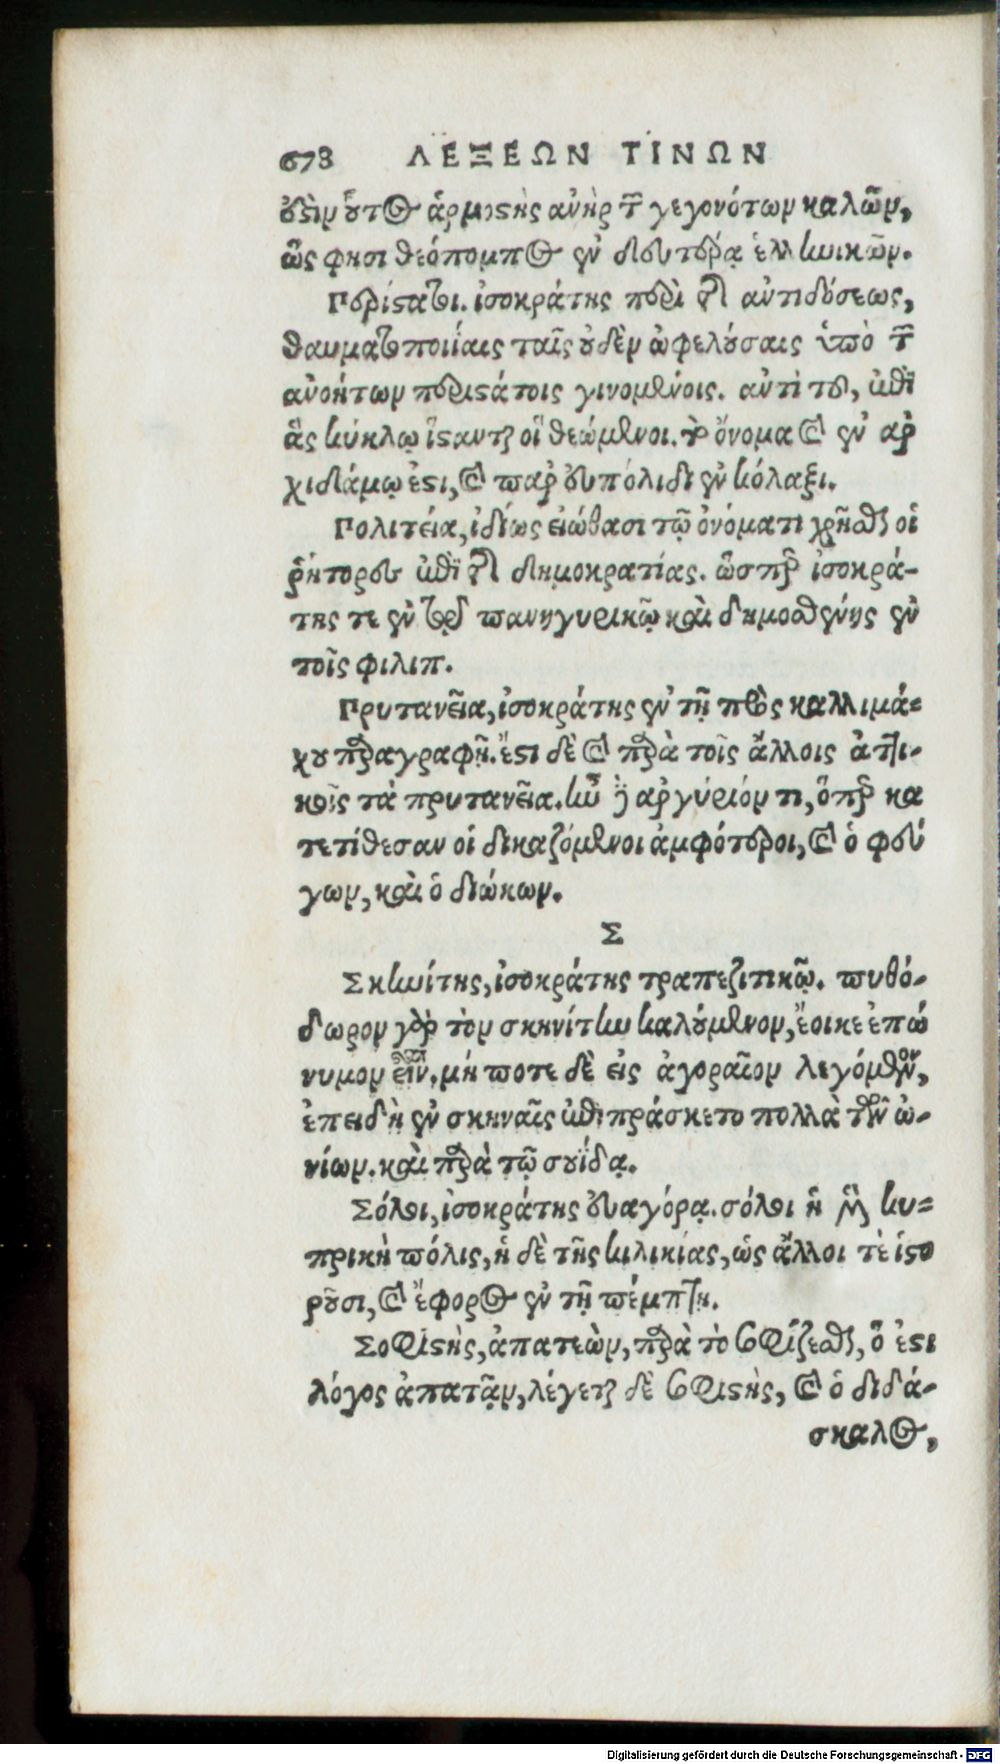 678 ΛΕΞΕΩΝ ΤΙΝΩΝ
ὅστιν οὗτος ἁρμοστὴς ἀνὴρ τῶν γεγονότων καλῶν,
ὥς φησι θεόπομπος ἐν δευτέρᾳ ἑλληνικῶν.
Περίστατοι. ἰσοκράτης περὶ τῆς ἀντιδόσεως,
θαυματοποιίαις ταῖς οὐδὲν ὠφελούσαις ὑπὸ τῶν
ἀνοήτων περιστάτοις γινομέναις. ἀντὶ τοῦ, ἐφ'
ἃς κύκλῳ ἵστανται οἱ θεώμενοι. τὸ ὄνομα καὶ ἐν ἀρ
χιδάμῳ ἐστι, καὶ παρ' εὐπόλιδι ἐν κόλαξι.
Πολιτεία, ἰδίως εἰώθασι τῷ ὀνόματι χρῆσθαι οἱ
ῥήτορες ἐπὶ τῆς δημοκρατίας. ὥσπερ ἰσοκρά-
της τε ἐν τῷ πανηγυρικῷ καὶ δημοσθένης ἐν
τοῖς φιλιπ.
Πρυτανεῖα, ἰσοκράτης ἐν τῇ πρὸς καλλιμά-
χου παραγραφῇ. ἔστι δὲ καὶ παρὰ τοῖς ἄλλοις ἀττι-
κοῖς τὰ πρυτανεῖα. ἦν δὲ ἀργύριόν τι, ὅπερ κα
τετίθεσαν οἱ δικαζόμενοι ἀμφότεροι, καὶ ὁ φεύ
γων, καὶ ὁ διώκων.
Σ
Σκηνίτης, ἰσοκράτης τραπεζιτικῷ. πυθό-
δωρον γὰρ τὸν σκηνίτην καλούμενον, ἔοικε ἐπώ
νυμον εἶναι. μή ποτε δὲ εἰς ἀγοραῖον λεγόμενον,
ἐπειδὴ ἐν σκηναῖς ἐπιπράσκετο πολλὰ τῶν ὠ-
νίων. καὶ παρὰ τῷ σουΐδᾳ.
Σόλοι, ἰσοκράτης εὐαγόρᾳ. σόλοι ἡ μὲν κυ-
πρικὴ πόλις, ἡ δὲ τῆς κιλικίας, ὡς ἄλλοι τὲ ἱστο
ροῦσι, καὶ ἔφορος ἐν τῇ πέμπτῃ.
Σοφιστὴς, ἀπατεὼν, παρὰ τὸ σοφίζεσθαι, ὅ ἐστι
λόγος ἀπατᾷν, λέγεται δὲ σοφιστὴς, καὶ ὁ διδά-
σκαλος,
Digitalisierung gefördert durch die Deutsche Forschungsgemeinschaft - DFG